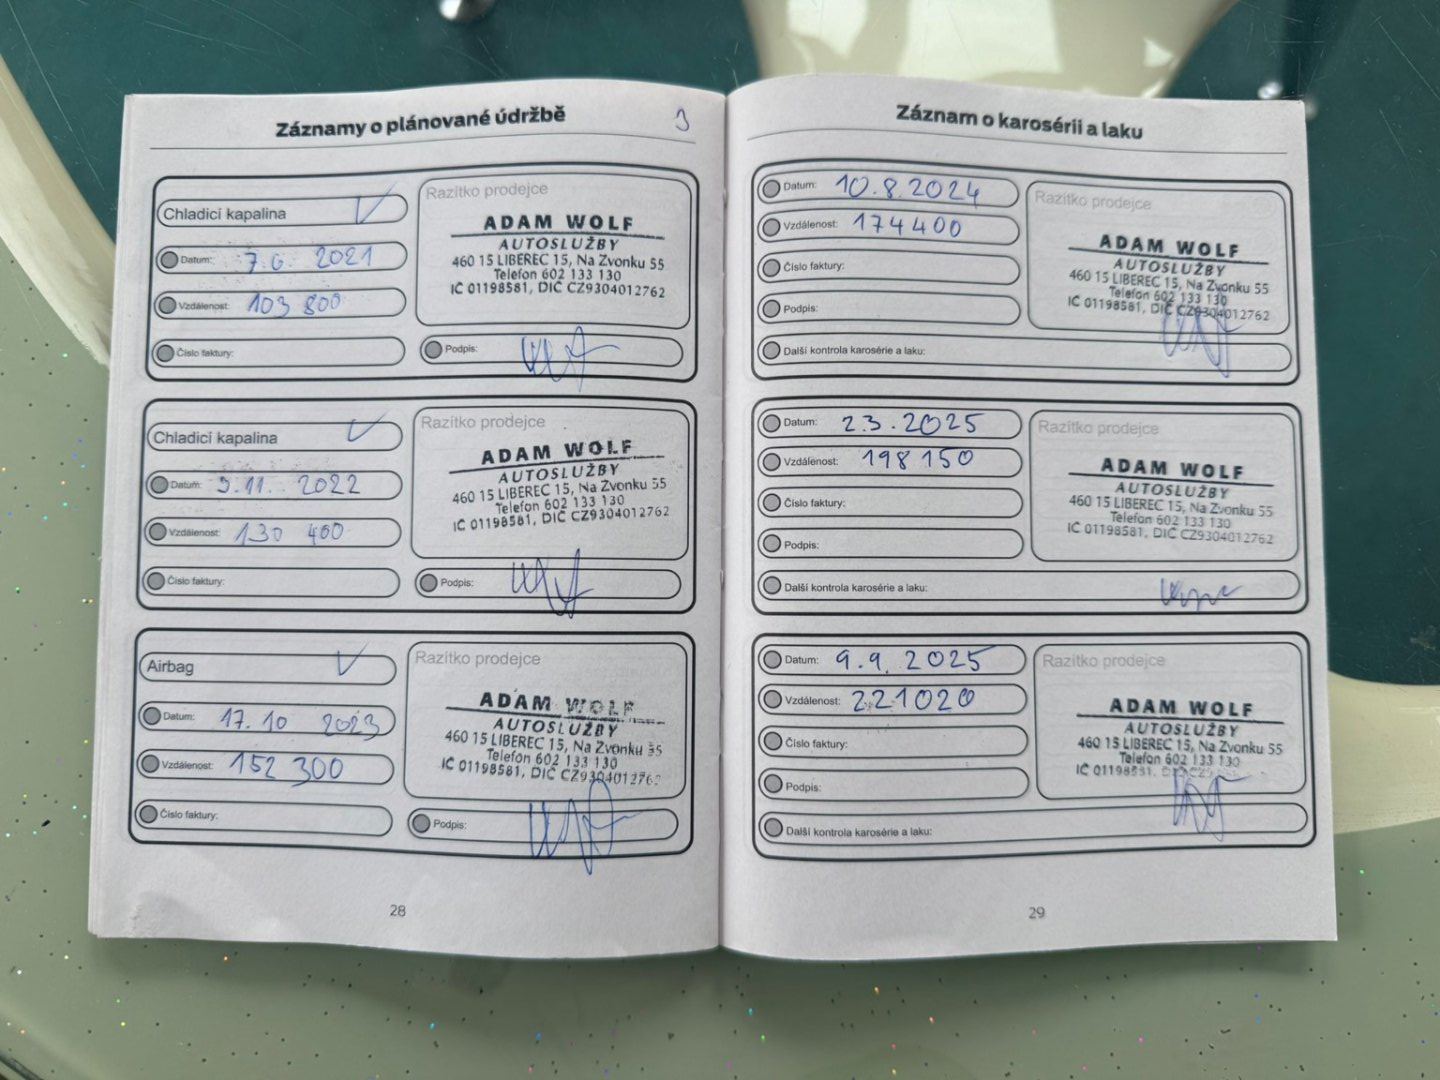 Záznamy o plánované údržbě
Chladicí kapalina
Datum: 7.6. 2021
Vzdálenost: 103 800
Číslo faktury:
Razítko prodejce
ADAM WOLF
AUTOSLUŽBY
460 15 LIBEREC 15, Na Zvonku 55
Telefon 602 133 130
IČ 01198581, DIČ CZ9304012762
Podpis:
Chladicí kapalina
Datum: 9.11. 2022
Vzdálenost: 130 400
Číslo faktury:
Razítko prodejce
ADAM WOLF
AUTOSLUŽBY
460 15 LIBEREC 15, Na Zvonku 55
Telefon 602 133 130
IČ 01198581, DIČ CZ9304012762
Podpis:
Airbag
Datum: 17.10 2023
Vzdálenost: 152 300
Číslo faktury:
Razítko prodejce
ADAM WOLF
AUTOSLUŽBY
460 15 LIBEREC 15, Na Zvonku 55
Telefon 602 133 130
IČ 01198581, DIČ CZ9304012762
Podpis:
28
Záznam o karosérii a laku
Datum: 10.8.2024
Vzdálenost: 174400
Číslo faktury:
Podpis:
Další kontrola karosérie a laku:
Razítko prodejce
ADAM WOLF
AUTOSLUŽBY
460 15 LIBEREC 15, Na Zvonku 55
Telefon 602 133 130
IČ 01198581, DIČ CZ9304012762
Datum: 2.3.2025
Vzdálenost: 198 150
Číslo faktury:
Podpis:
Další kontrola karosérie a laku:
Razítko prodejce
ADAM WOLF
AUTOSLUŽBY
460 15 LIBEREC 15, Na Zvonku 55
Telefon 602 133 130
IČ 01198581, DIČ CZ9304012762
Datum: 9.9.2025
Vzdálenost: 221020
Číslo faktury:
Podpis:
Další kontrola karosérie a laku:
Razítko prodejce
ADAM WOLF
AUTOSLUŽBY
460 15 LIBEREC 15, Na Zvonku 55
Telefon 602 133 130
IČ 01198581,
29